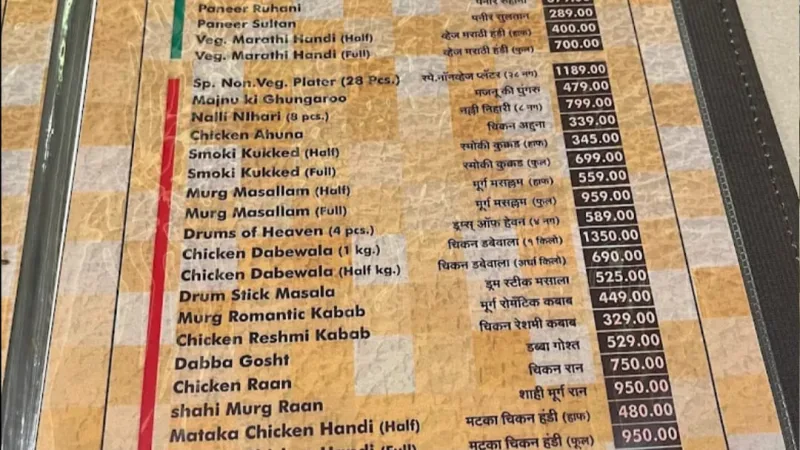 Paneer Ruhani पनीर रुहानी
Paneer Sultan पनीर सुलतान 289.00
Veg. Marathi Handi (Half) व्हेज मराठी हंडी (हाफ) 400.00
Veg. Marathi Handi (Full) व्हेज मराठी हंडी (फुल) 700.00
Sp. Non.Veg. Plater (28 Pcs.) स्पे.नॉनव्हेज प्लॅटर (२८ नग) 1189.00
Majnu ki Ghungaroo मजनू की घुंगरु 479.00
Nalli NIhari (8 pcs.) नल्ली निहारी (८ नग) 799.00
Chicken Ahuna चिकन अहुना 339.00
Smoki Kukked (Half) स्मोकी कुक्कड (हाफ) 345.00
Smoki Kukked (Full) स्मोकी कुक्कड (फुल) 699.00
Murg Masallam (Half) मूर्ग मसल्लम (हाफ) 559.00
Murg Masallam (Full) मूर्ग मसल्लम (फुल) 959.00
Drums of Heaven (4 pcs.) ड्रम्स ऑफ हेवन (४ नग) 589.00
Chicken Dabewala (1 kg.) चिकन डबेवाला (१ किलो) 1350.00
Chicken Dabewala (Half kg.) चिकन डबेवाला (अर्धा किलो) 690.00
Drum Stick Masala ड्रम स्टीक मसाला 525.00
Murg Romantic Kabab मूर्ग रोमँटिक कबाब 449.00
Chicken Reshmi Kabab चिकन रेशमी कबाब 329.00
Dabba Gosht डब्बा गोश्त 529.00
Chicken Raan चिकन रान 750.00
shahi Murg Raan शाही मूर्ग रान 950.00
Mataka Chicken Handi (Half) मटका चिकन हंडी (हाफ) 480.00
Chicken Handi (Full) मटका चिकन हंडी (फूल) 950.00